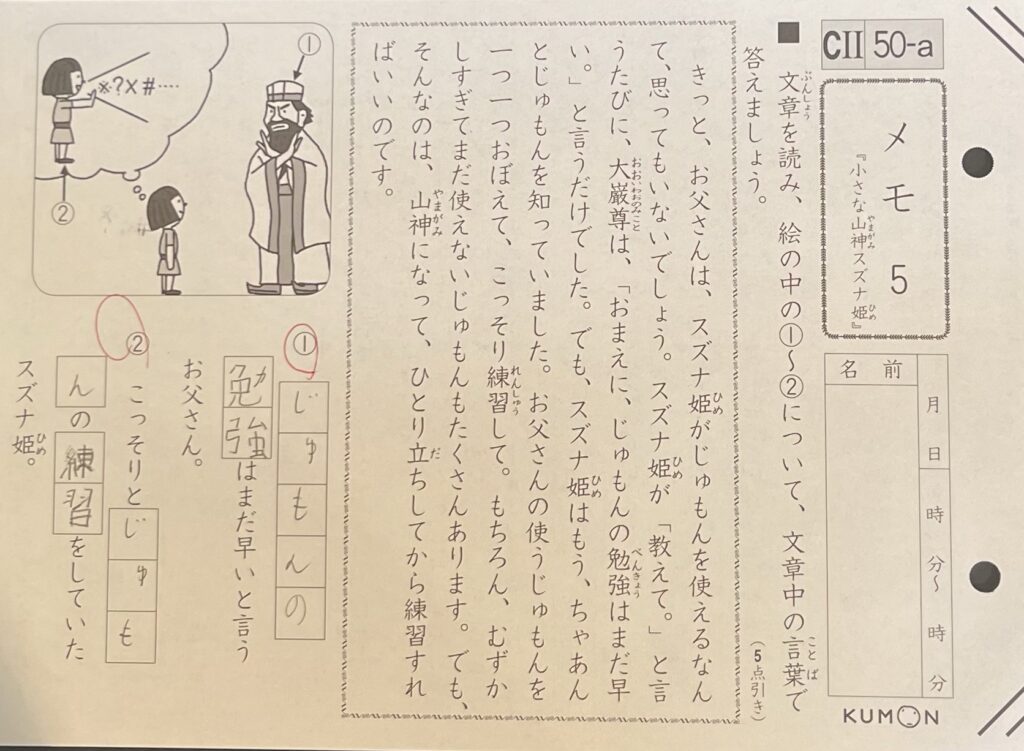 CII 50-a
メモ 5
『小さな山神スズナ姫』
やまがみ
ひめ
月 日
時 分〜 時 分
名前
KUMON
■ 文章を読み、絵の中の①〜②について、文章中の言葉で
ぶんしょう
ことば
答えましょう。
(5点引き)
きっと、お父さんは、スズナ姫がじゅもんを使えるなん
ひめ
て、思ってもいないでしょう。スズナ姫が「教えて。」と言
ひめ
うたびに、大巌尊は、「おまえに、じゅもんの勉強はまだ早
おおいわおのみこと
べんきょう
い。」と言うだけでした。でも、スズナ姫はもう、ちゃあん
ひめ
とじゅもんを知っていました。お父さんの使うじゅもんを
一つ一つおぼえて、こっそり練習して。もちろん、むずか
れんしゅう
しすぎてまだ使えないじゅもんもたくさんあります。でも、
そんなのは、山神になって、ひとり立ちしてから練習すれ
やまがみ
だ
ばいいのです。
①
※?X#‥‥
②
① じゅもんの
勉強はまだ早いと言う
お父さん。
② こっそりとじゅも
んの練習をしていた
スズナ姫。
ひめ